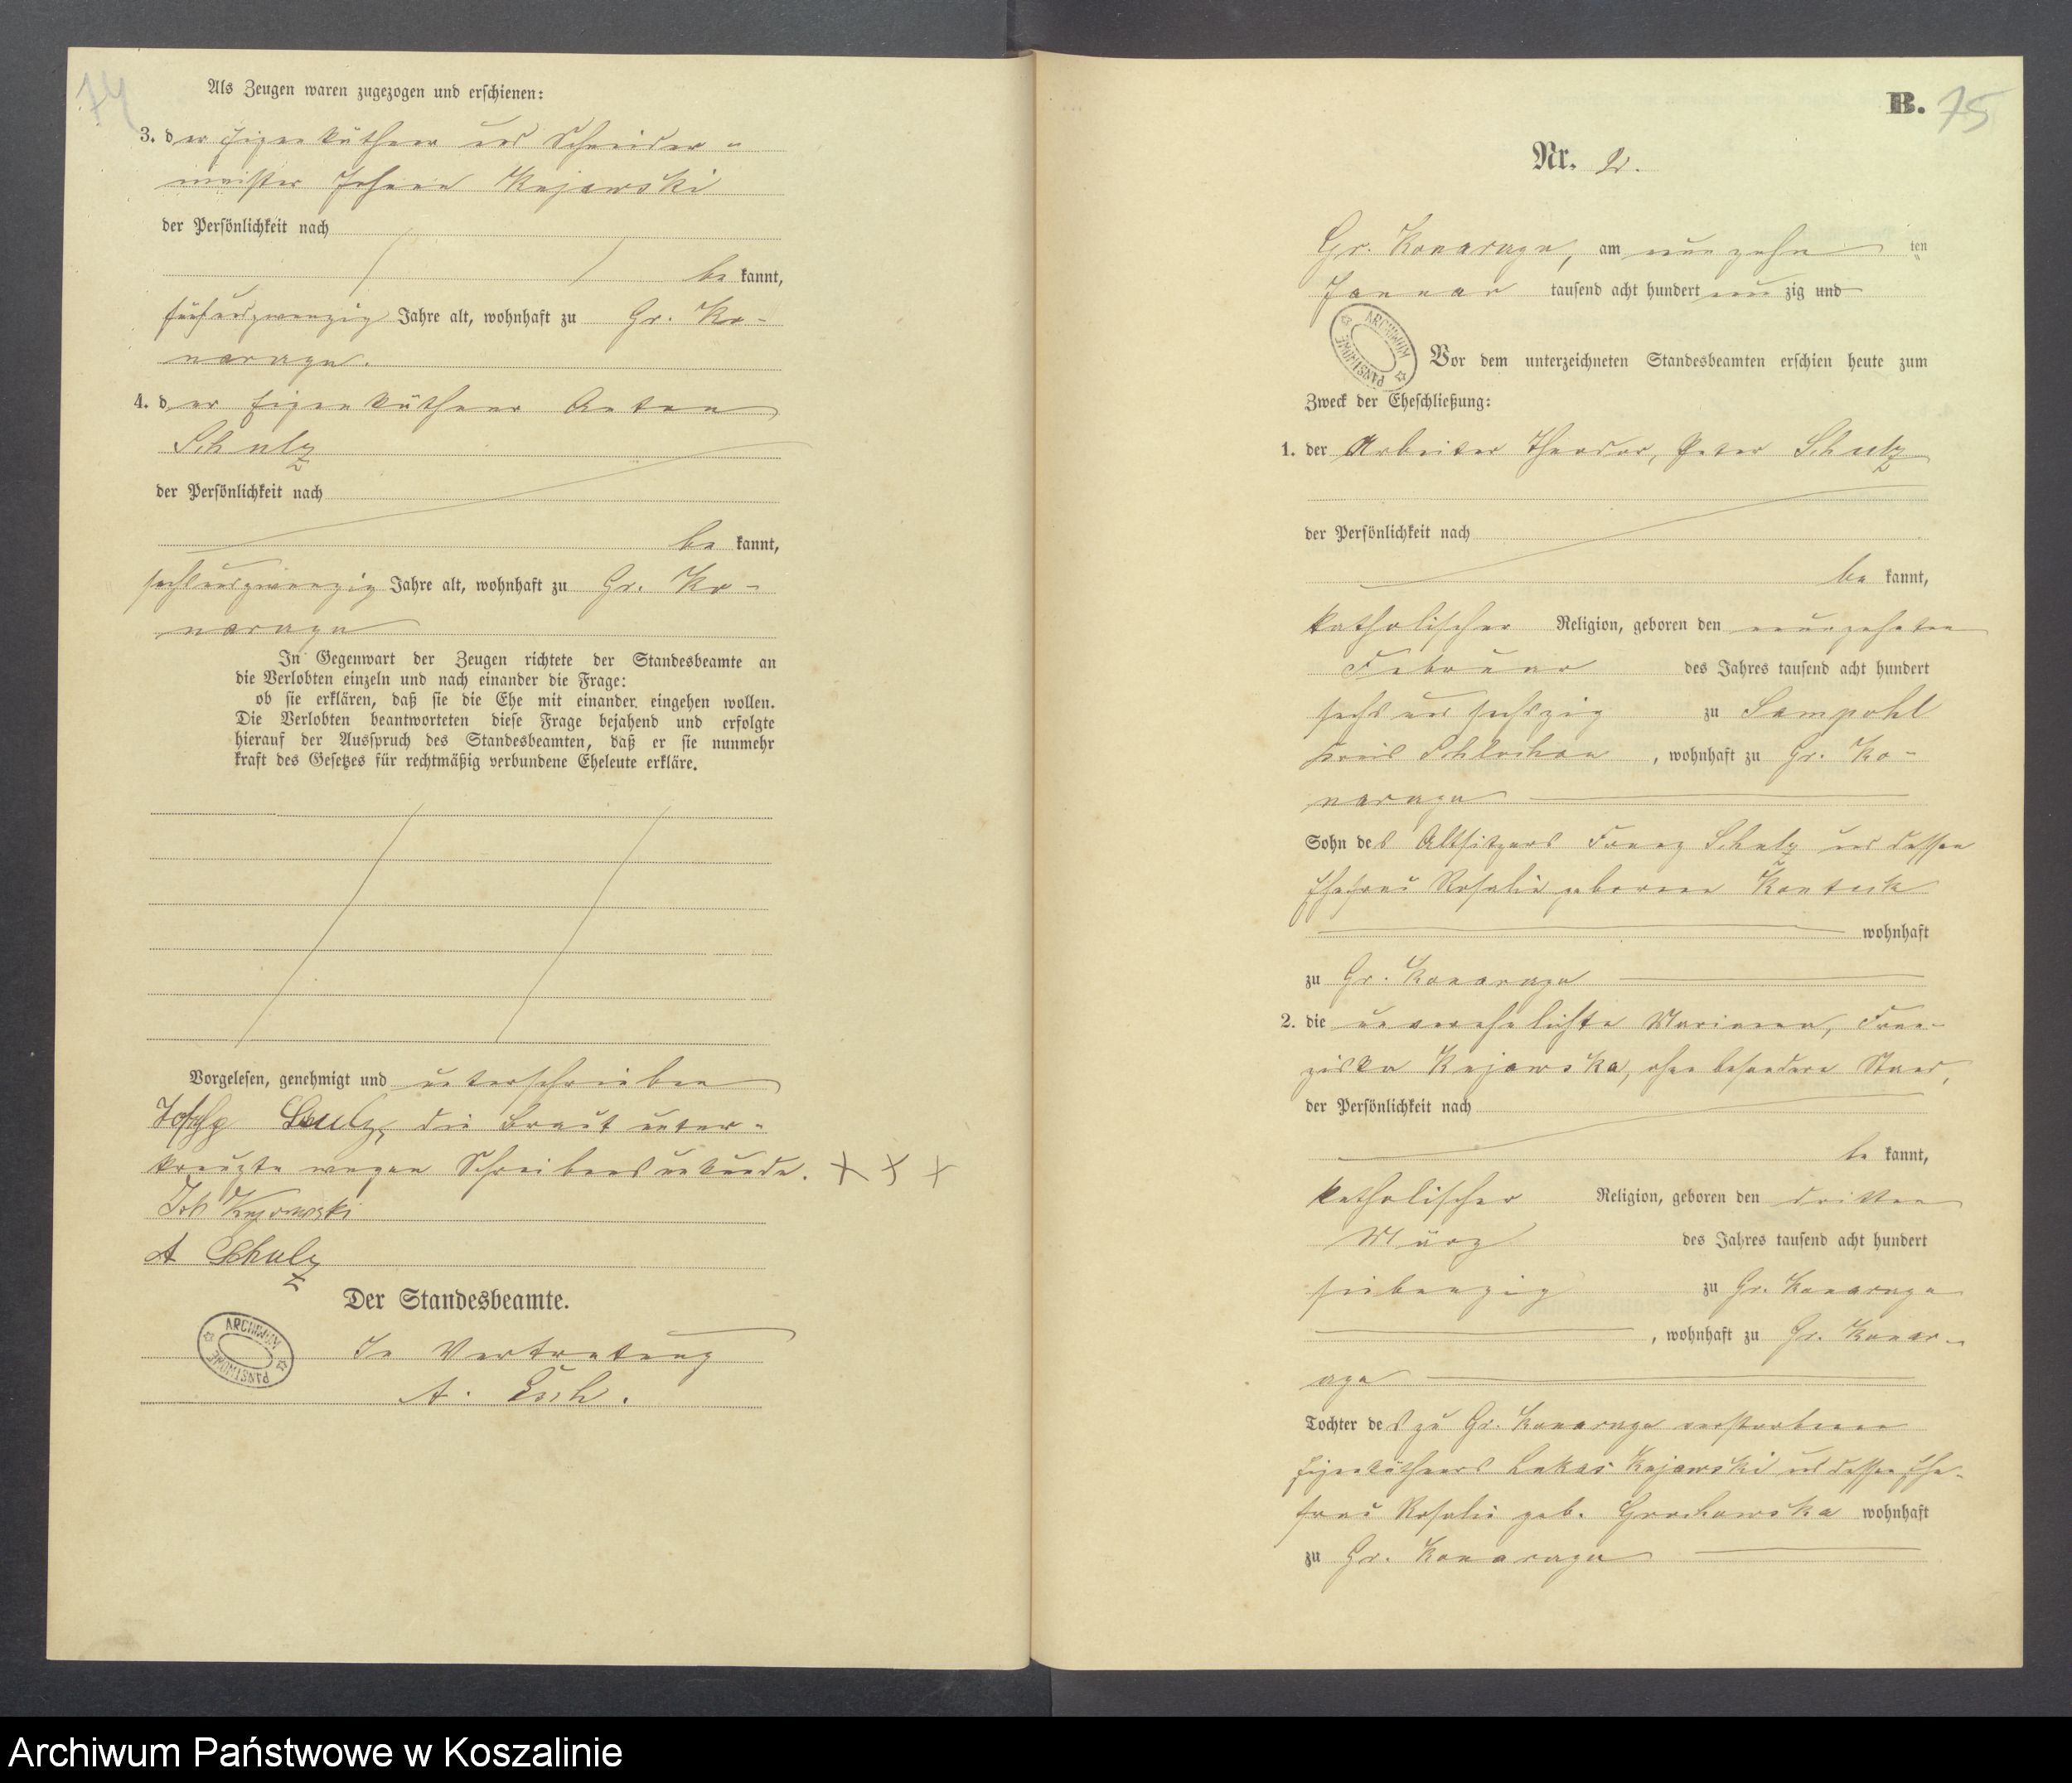 74
Als Zeugen waren zugezogen und erschienen:
3. der Eigenkäthner und Schneider-
meister Johann Kujawski
der Persönlichkeit nach
be kannt,
fünfundzwanzig Jahre alt, wohnhaft zu Gr. Ko-
narzyn.
4. der Eigenkäthner Anton
Schulz
der Persönlichkeit nach
be kannt,
sechsundzwanzig Jahre alt, wohnhaft zu Gr. Ko-
narzyn
In Gegenwart der Zeugen richtete der Standesbeamte an
die Verlobten einzeln und nach einander die Frage:
ob sie erklären, daß sie die Ehe mit einander eingehen wollen.
Die Verlobten beantworteten diese Frage bejahend und erfolgte
hierauf der Ausspruch des Standesbeamten, daß er sie nunmehr
kraft des Gesetzes für rechtmäßig verbundene Eheleute erkläre.
Vorgelesen, genehmigt und unterschrieben
die Braut unter-
kreuzte wegen Schreibensunkunde. + + +
Joh Kujawski
A Schulz
Der Standesbeamte.
ARCHIWUM PAŃSTWOWE
In Vertretung
A.
B. 75
Nr. 2.
Gr. Konarzyn, am neunzehn ten
Januar tausend acht hundert neunzig und
ARCHIWUM PAŃSTWOWE
Vor dem unterzeichneten Standesbeamten erschien heute zum
Zweck der Eheschließung:
1. der Arbeiter Theodor, Peter Schulz
der Persönlichkeit nach
be kannt,
katholischer Religion, geboren den neunzehnten
Februar des Jahres tausend acht hundert
sechs und sechszig zu Sampohl
Kreis Schlochau, wohnhaft zu Gr. Ko-
narzyn
Sohn des Altsitzers Franz Schulz und dessen
Ehefrau Rosalie geborene Kontek
wohnhaft
zu Gr. Konarzyn
2. die unverehelichte Marianna, Fran-
ziska Kujawska, ohne besonderen Stand,
der Persönlichkeit nach
be kannt,
katholischer Religion, geboren den dritten
März des Jahres tausend acht hundert
siebenzig zu Gr. Konarzyn
, wohnhaft zu Gr. Konar-
zyn
Tochter des zu Gr. Konarzyn verstorbenen
Eigenkäthners Lukas Kujawski und dessen Ehe-
frau Rosalie geb. Grochowska wohnhaft
zu Gr. Konarzyn
Archiwum Państwowe w Koszalinie